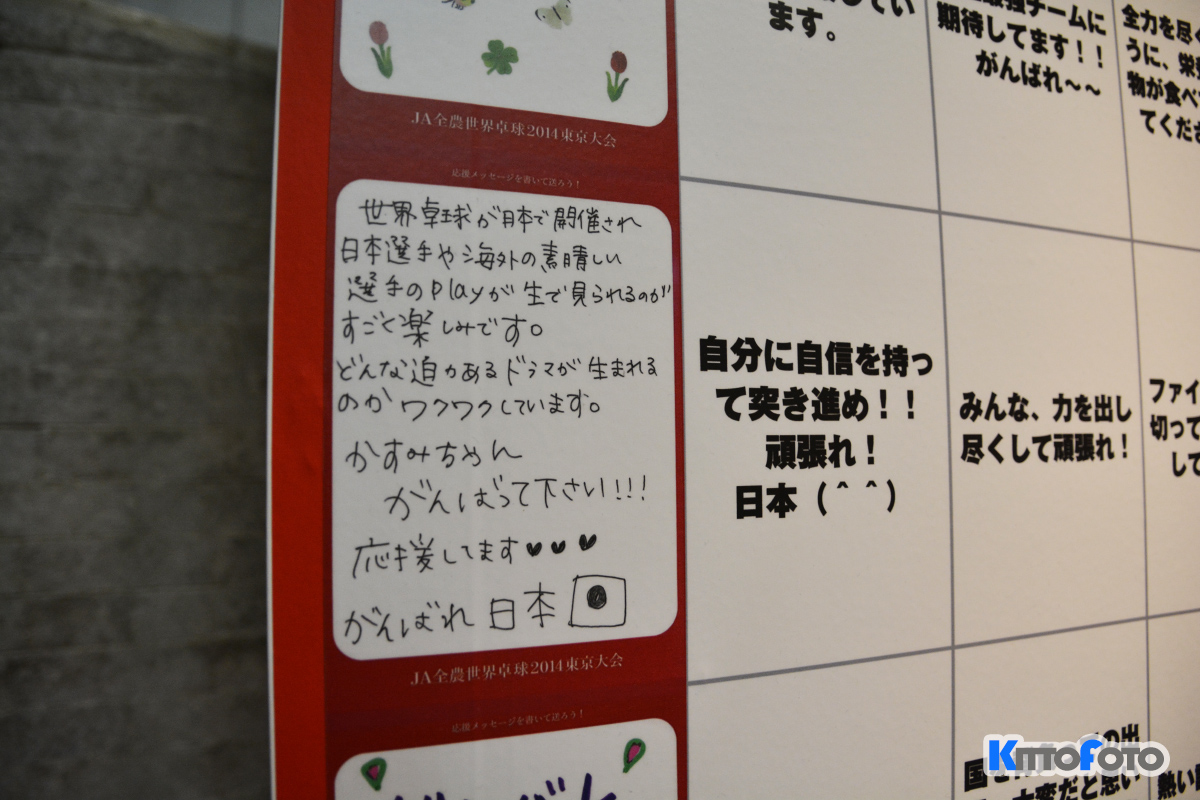 JA全農世界卓球2014東京大会
応援メッセージを書いて送ろう!
世界卓球が日本で開催され
日本選手や海外の素晴しい
選手のplayが生で見られるのが
すごく楽しみです。
どんな迫力あるドラマが生まれる
のかワクワクしています。
かすみちゃん
がんばって下さい!!!
応援してます♥♥♥
がんばれ 日本
JA全農世界卓球2014東京大会
応援メッセージを書いて送ろう!
ます。
チームに
期待してます!!
がんばれ~~
全力を尽く
うに、栄養
物が食べ
てくださ
自分に自信を持っ
て突き進め!!
頑張れ!
日本(^ ^)
みんな、力を出し
尽くして頑張れ!
ファイ
切って
して
KITTOFOTO